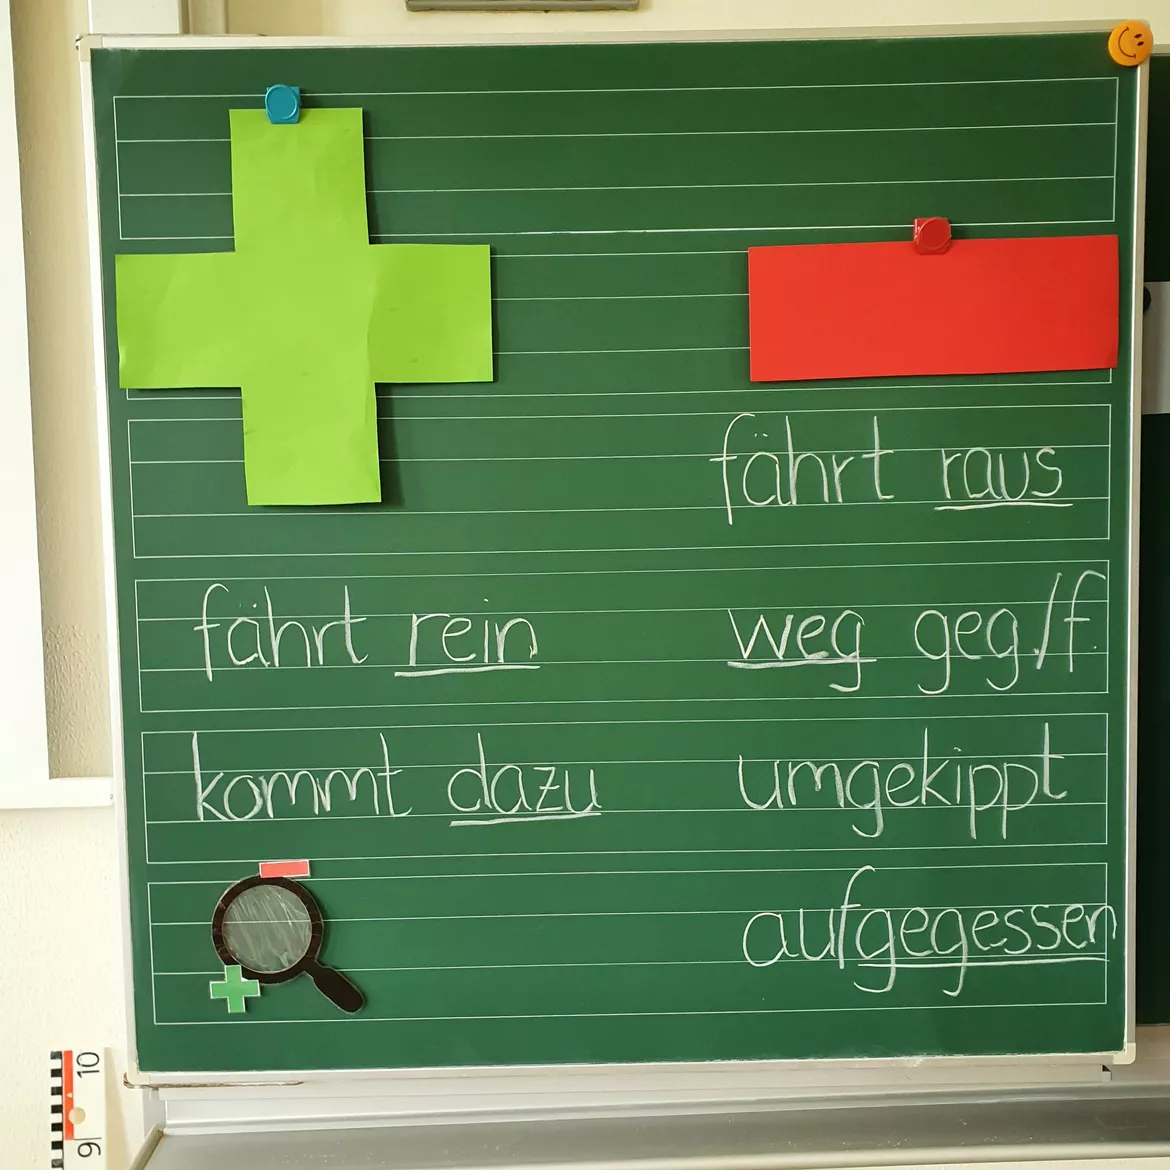 fährt raus
fährt rein
weg geg./f.
kommt dazu
umgekippt
aufgegessen
10
9